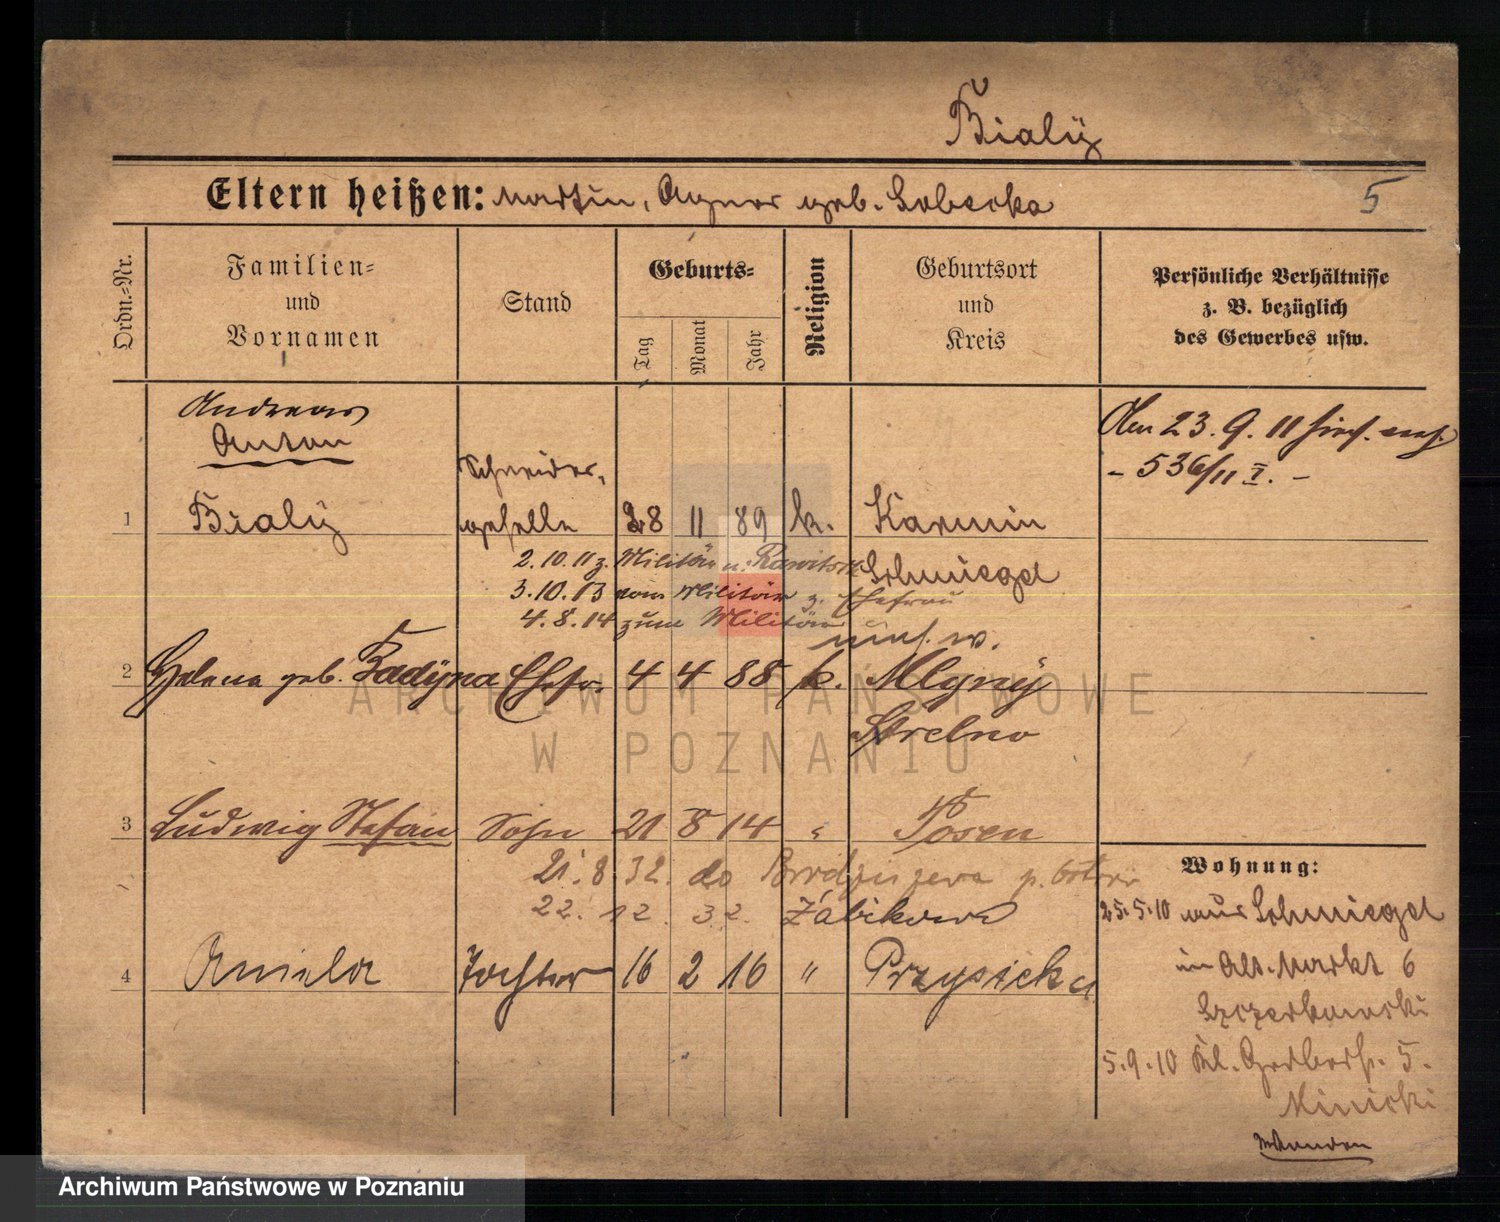 Bialÿ
Eltern heißen: Martin, Agnes geb. Sobecka
5
Ordn.-Nr.
Familien-
und
Vornamen
Stand
Geburts-
Tag
Monat
Jahr
Religion
Geburtsort
und
Kreis
Persönliche Verhältnisse
z. B. bezüglich
des Gewerbes usw.
Andreas
Anton
Den 23. 9. 11
- 536/11 I. -
Schneider-
1 Bialÿ geselle 28 11 89 k. Karmin
2.10.11 z. Militär n. Rawitsch Schmiegel
3.10.13 vom Militär z. Ehefrau
4.8.14 zum Militär
2 Helena geb. Badÿna Ehefr. 4 4 88 k. Mlyny
Strelno
3 Ludwig Stefan Sohn 21 8 14 " Posen
21.8.32. do p.
22. 12. 32. Żabikowo
4 Aniela Tochter 16 2 16 " Przysieka
Wohnung:
25.5.10 aus Schmiegel
in Alt. Markt 6
Szczerkowski
5.9.10 Kl. Gerberstr. 5.
Minicki
wenden
ARCHIWUM PAŃSTWOWE
W POZNANIU
Archiwum Państwowe w Poznaniu